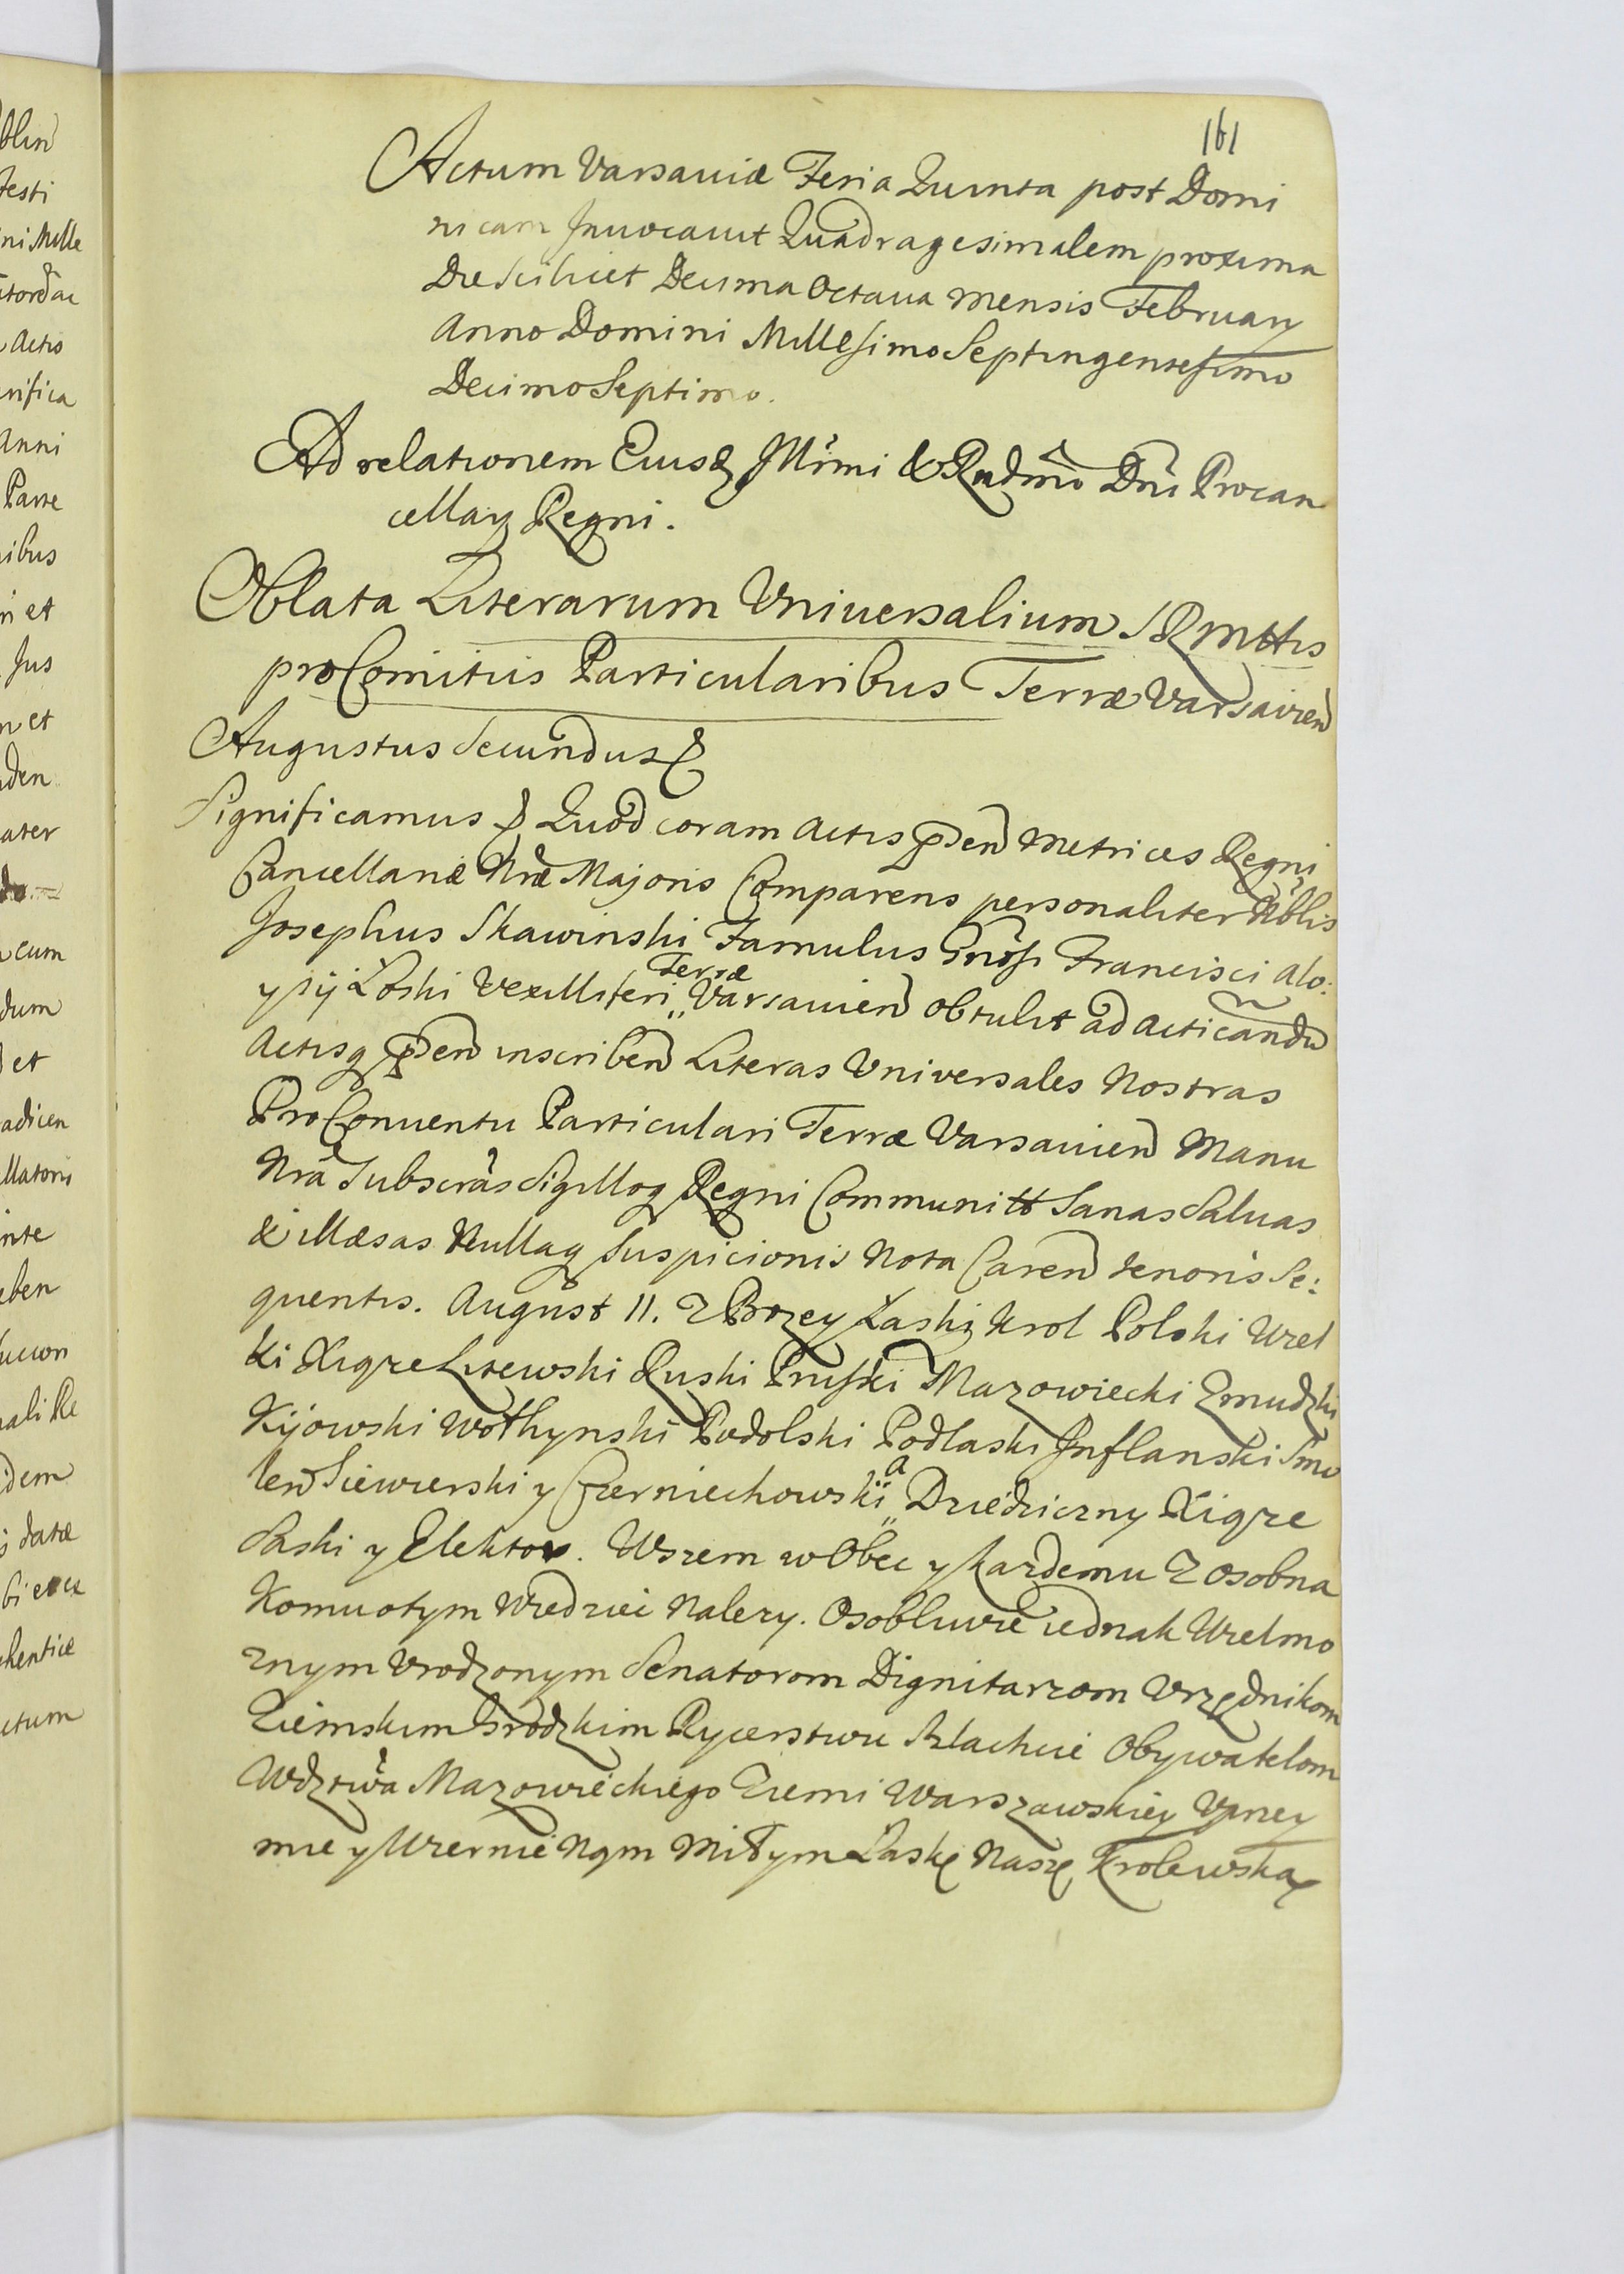 161
Actum Varsaviæ Feria Quinta post Domi
nicam Invocavit Quadragesimalem proxima
Die Scilicet Decima Octava Mensis February
Anno Domini Millesimo Septingentesimo
Decimo Septimo.
Ad relationem Eiusd Illrmi & Rndmo Dni Procan
cellary Regni.
Oblata Literarum Universalium SRMttis
pro Comitiis Particularibus Terræ Varsavien
Augustus Secundus
Significamus Quod coram Actis pden Metrices Regni
Cancellariæ Nræ Majoris Comparens personaliter Nblis
Josephus Skawinski Famulus Gnosi Francisci Alo:
ysij Łoski Vexilliferi Terræ Varsavien obtulit ad acticandu
Actisq pden inscriben Literas Universales Nostras
Pro Conventu Particulari Terræ Varsavien Manu
Nra Subscras Sigilloq Regni Communitt Sanas Salvas
& illæsas Nullaq Suspicionis Nota Caren tenoris Se:
quentis. August II. z Bozey Łaski Krol Polski Wiel
ki Xiąze Litewski Ruski Pruski Mazowiecki Zmudzki
Kijowski Wołhynski Podolski Podlaski Inflanski Smo
len Siewierski y Czerniechowski a Dziedziczny Xiąze
Saski y Elektor. Wszem w Obec y kazdemu z osobna
Komu o tym Wiedziec Nalezy. Osobliwie iednak Wielmo
znym Vrodzonym Senatorom Dignitarzom Vrzędnikom
Ziemskim Grodzkim Rycerstwu Szlachcie Obywatelom
Wdztwa Mazowieckiego Ziemi Warszawskiey Vprzey
mie y Wiernie Nąm Miłym Łaskę Naszę Krolewską